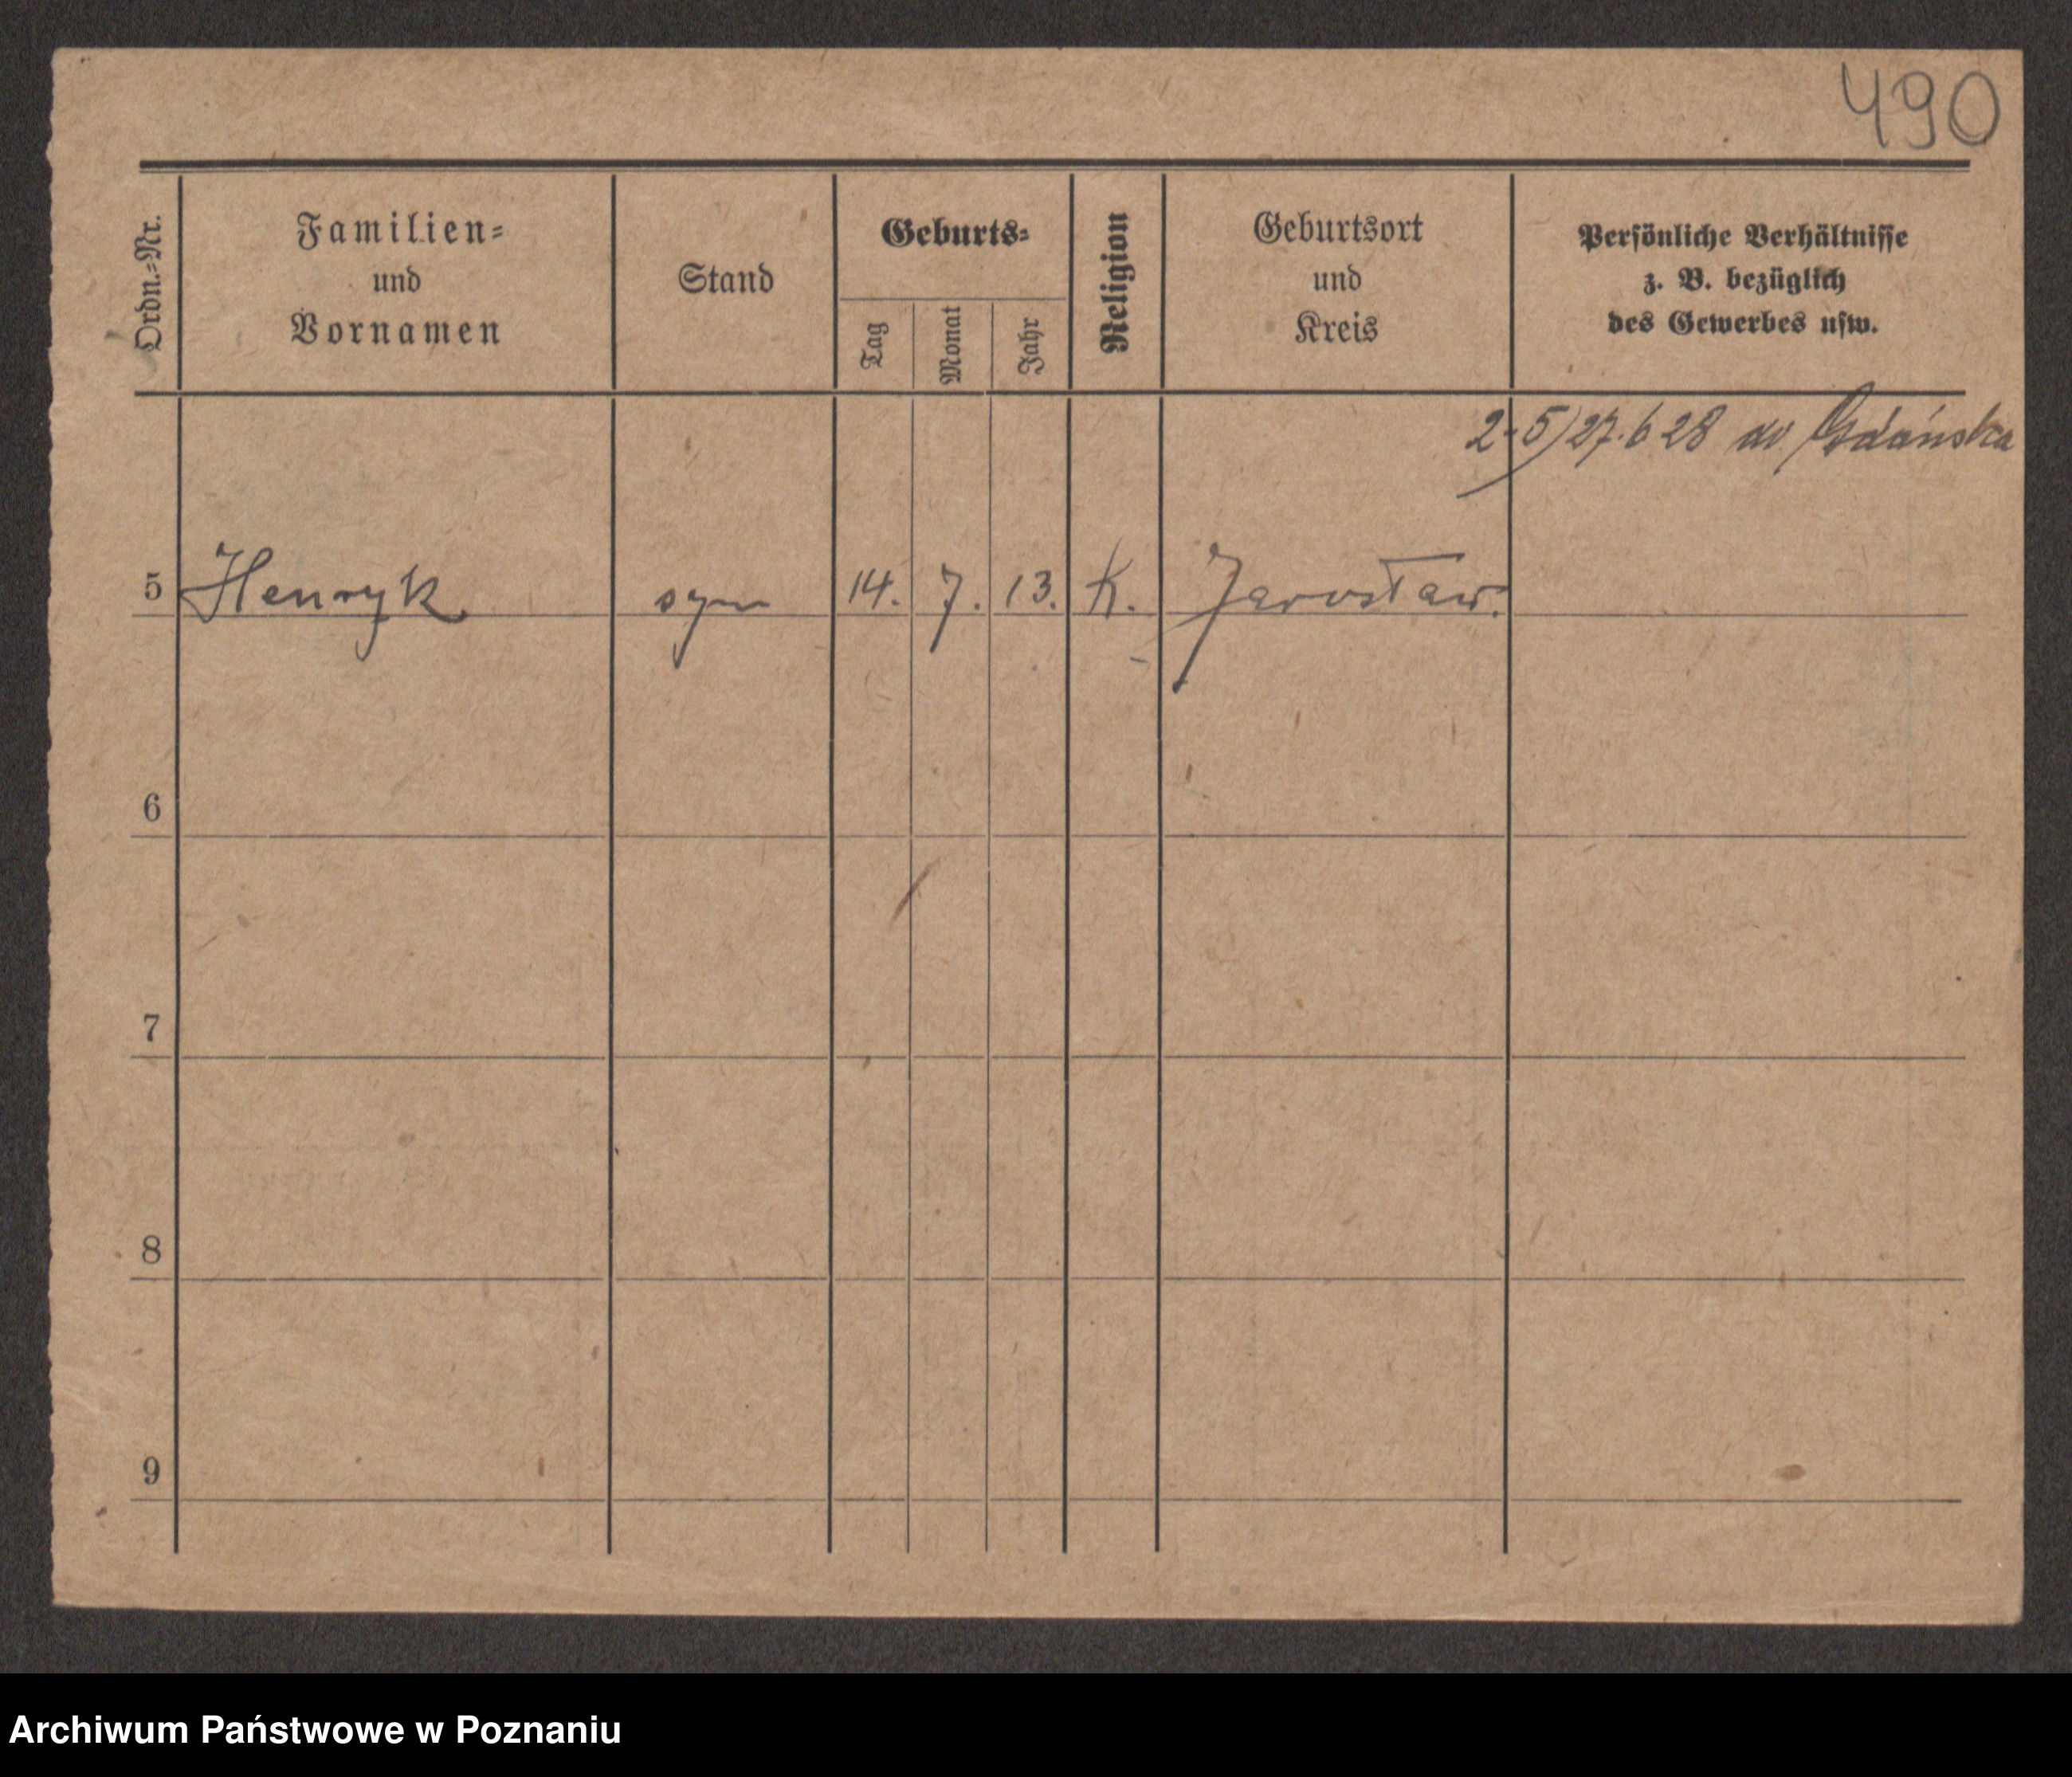 490
Ordn.-Nr.
Familien-
und
Vornamen
Stand
Geburts-
Tag
Monat
Jahr
Religion
Geburtsort
und
Kreis
Persönliche Verhältnisse
z. B. bezüglich
des Gewerbes usw.
2-5) 27.6 28 do Gdańska
5 Henryk syn 14. 7. 13. K. Jarosław.
6
7
8
9
Archiwum Państwowe w Poznaniu